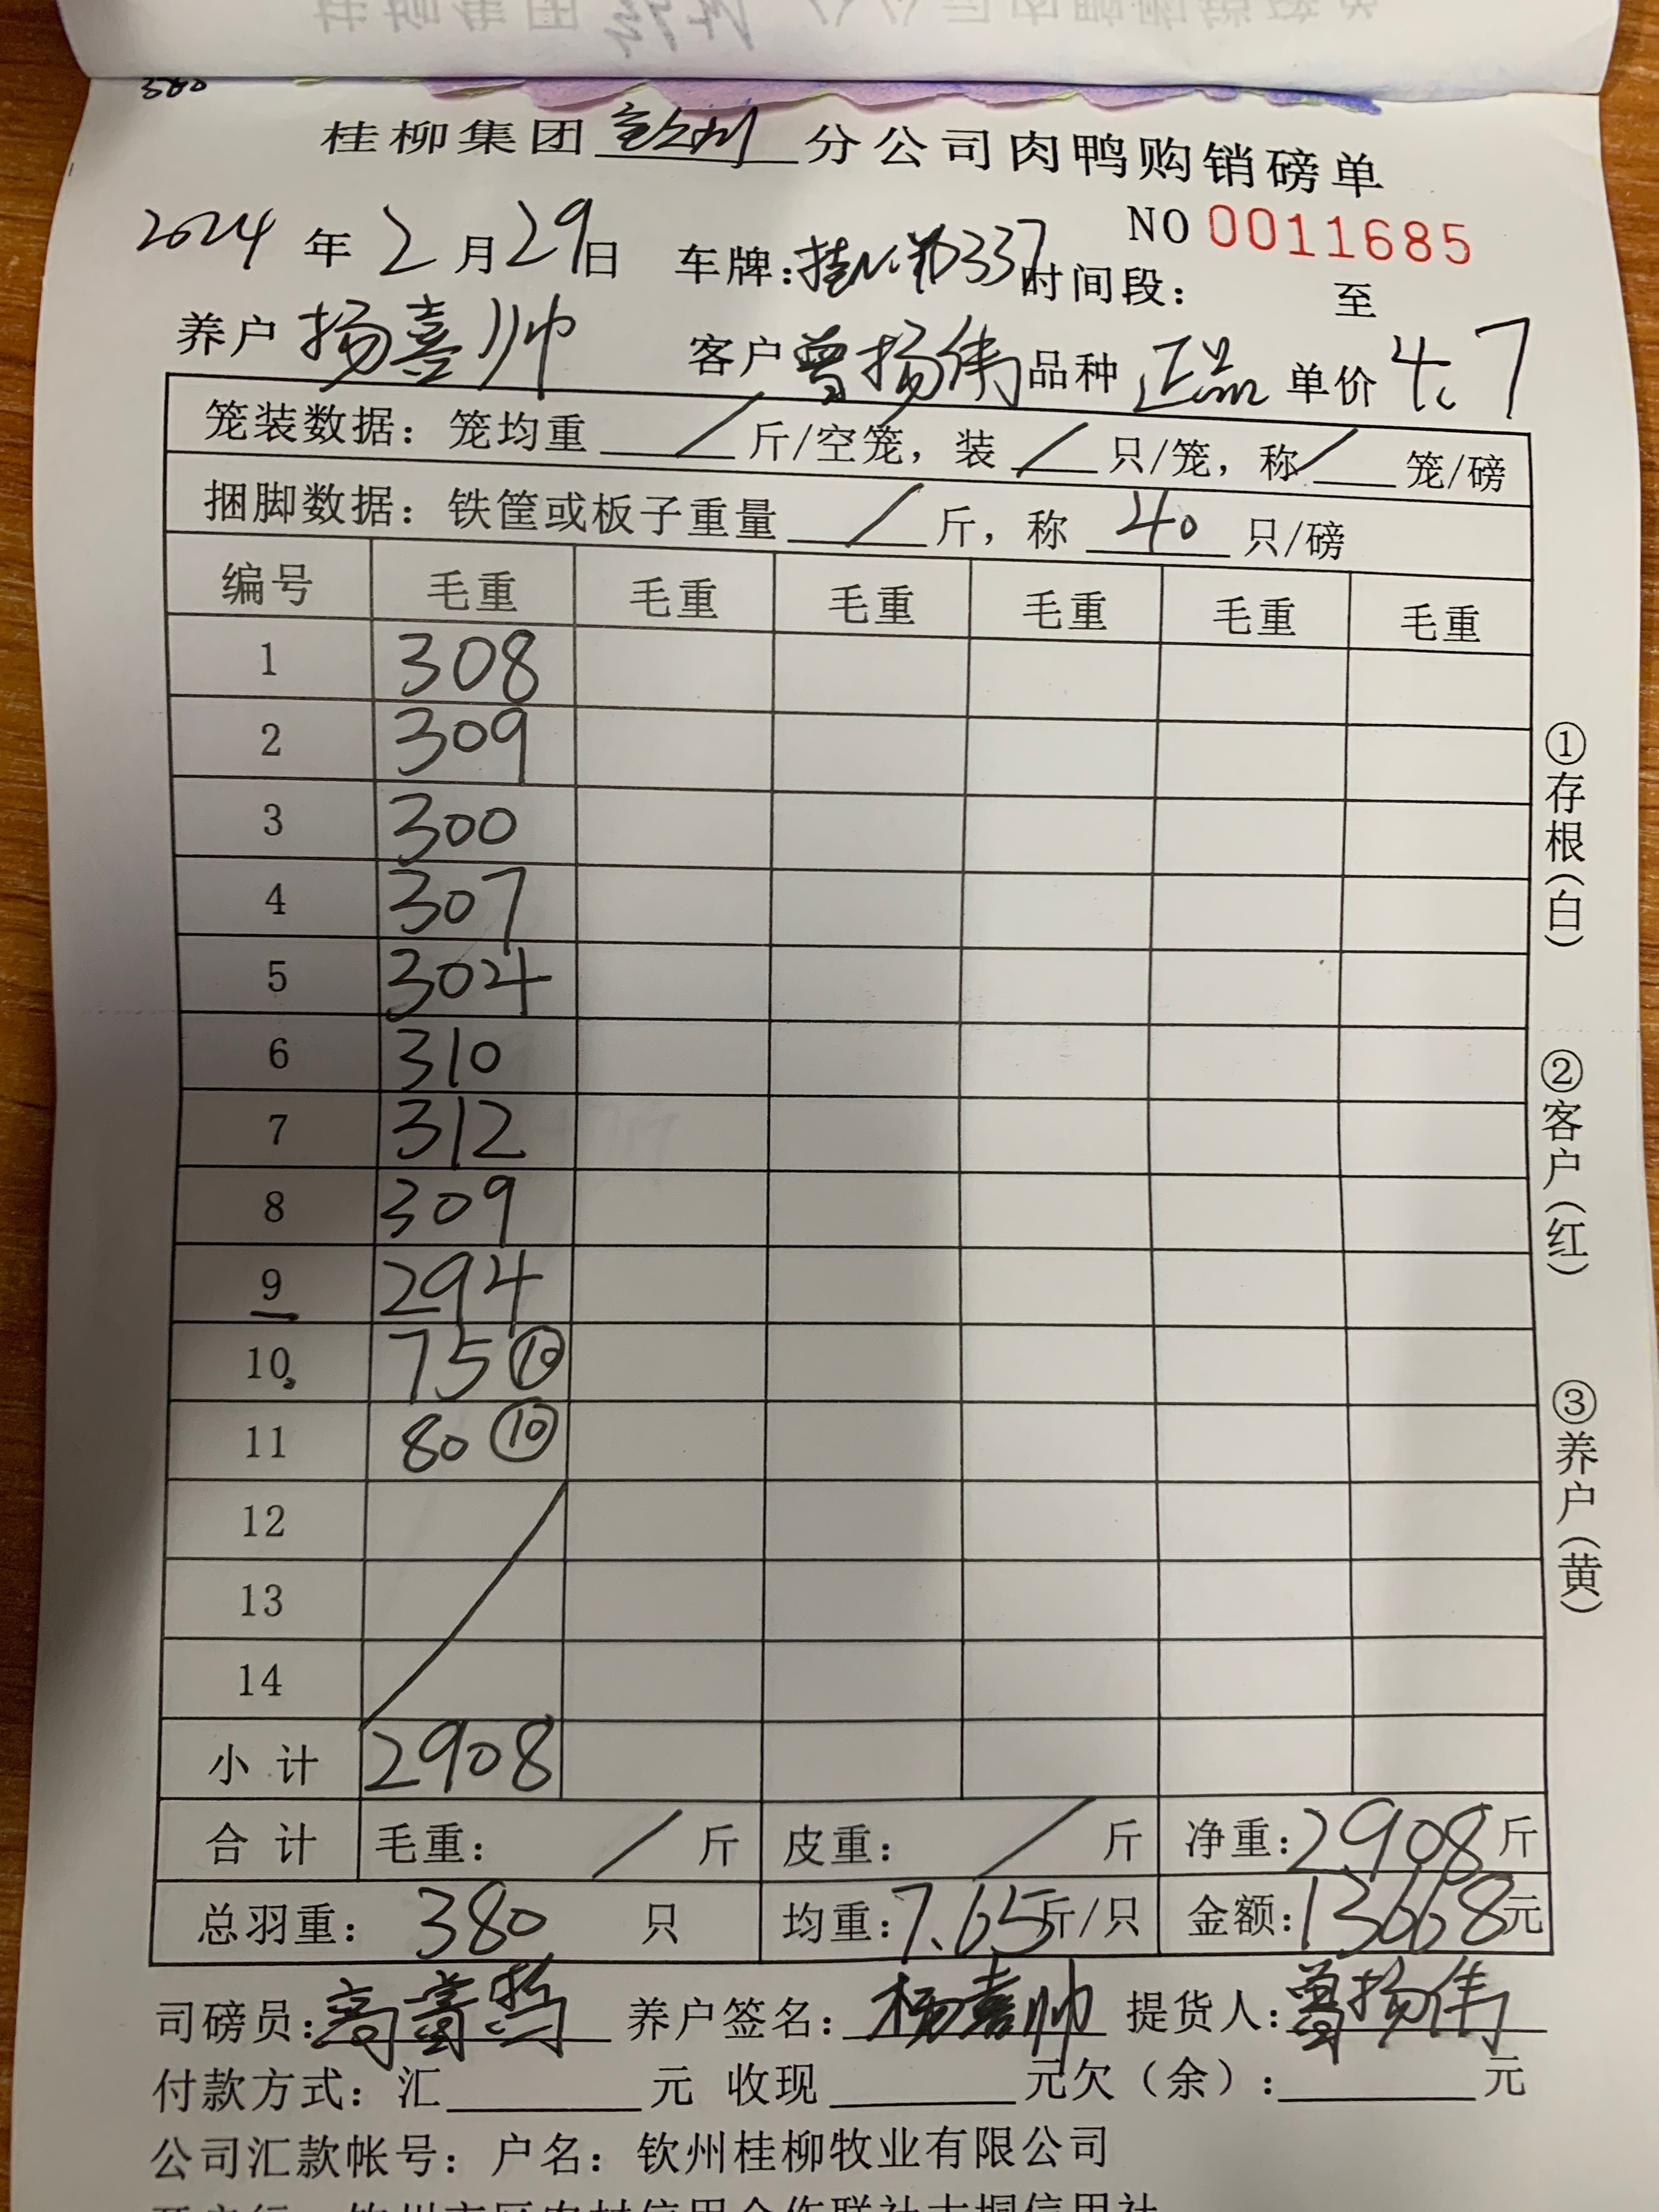 380
桂柳集团 钦州 分公司肉鸭购销磅单
NO 0011685
2024 年 2 月 29 日 车牌: 337 时间段: 至
养户 杨喜帅 客户 曾扬伟 品种 正品 单价 4.7
笼装数据: 笼均重 / 斤/空笼, 装 / 只/笼, 称 / 笼/磅
捆脚数据: 铁筐或板子重量 / 斤, 称 40 只/磅
编号 毛重 毛重 毛重 毛重 毛重 毛重
1 308
2 309
3 300
4 307
5 304
6 310
7 312
8 309
9 294
10 75 ⑩
11 80 ⑩
12
13
14
小计 2908
合计 毛重: / 斤 皮重: / 斤 净重: 2908 斤
总羽重: 380 只 均重: 7.65 斤/只 金额: 13668 元
①存根(白)
②客户(红)
③养户(黄)
司磅员: 养户签名: 杨喜帅 提货人: 曾扬伟
付款方式: 汇 元 收现 元欠(余): 元
公司汇款帐号: 户名: 钦州桂柳牧业有限公司